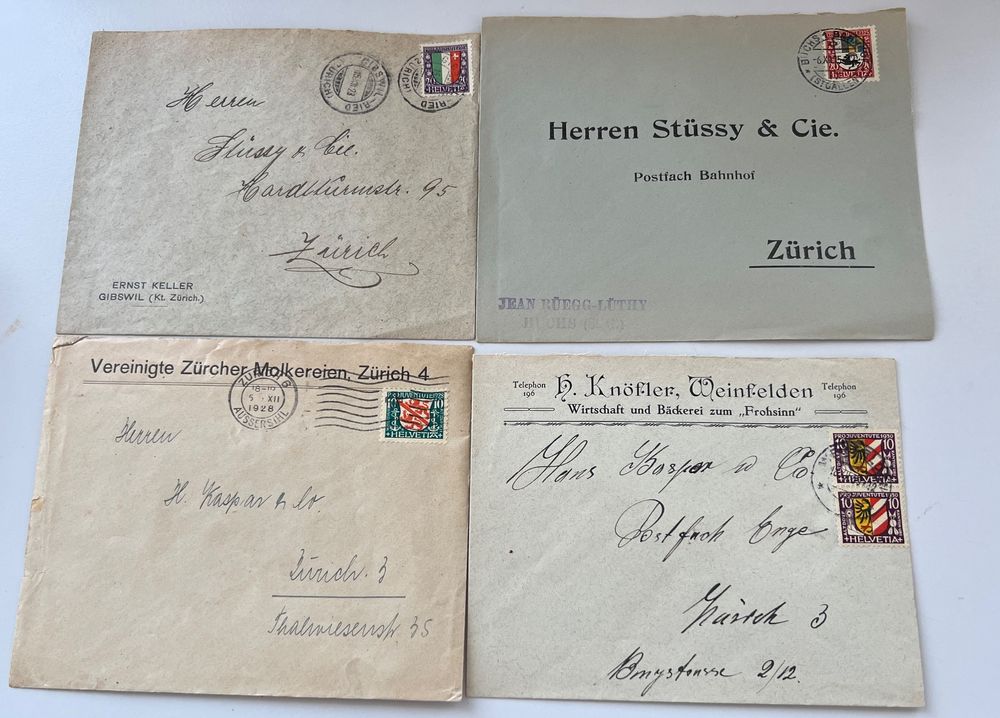 GIBSWIL-RIED
(ZÜRICH)
20 20
HELVETIA
Herren
Stüssy & Cie.
Hardtturmstr. 95
Zürich
ERNST KELLER
GIBSWIL (Kt. Zürich.)
BUCHS
(ST. GALLEN)
20 20
HELVETIA
Herren Stüssy & Cie.
Postfach Bahnhof
Zürich
JEAN RÜEGG-LÜTHY
BUCHS (St. G.)
Vereinigte Zürcher Molkereien, Zürich 4
ZÜRICH 6
XII
1928
AUSSERSIHL
10 10
HELVETIA
Herren
H. Kaspar & Co.
Zürich. 3
Thalwiesenstr 35
Telephon
196
H. Knöfler, Weinfelden
Telephon
196
Wirtschaft und Bäckerei zum „Frohsinn"
Hans Kaspar u Co.
Postfach Enge
Zürich 3
2/12.
PRO JUVENTUTE 1930
10 10
HELVETIA
PRO JUVENTUTE 1930
10 10
HELVETIA